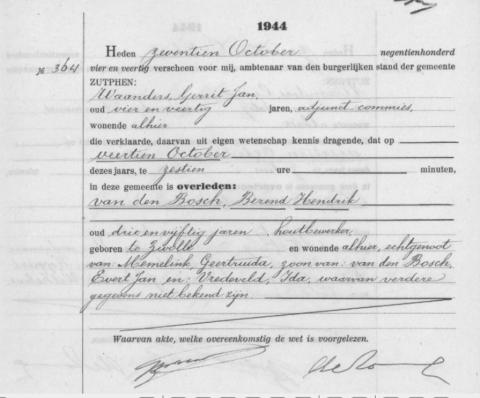 1944
Heden zeventien October negentienhonderd
№ 364 vier en veertig verscheen voor mij, ambtenaar van den burgerlijken stand der gemeente
ZUTPHEN:
Waanders, Gerrit Jan,
oud vier en veertig jaren, adjunct commies,
wonende alhier
die verklaarde, daarvan uit eigen wetenschap kennis dragende, dat op
veertien October
dezes jaars, te zestien ure minuten,
in deze gemeente is overleden:
van den Bosch, Berend Hendrik
oud drie en vijftig jaren, houtbewerker,
geboren te Zwolle en wonende alhier, echtgenoot
van: Memelink, Geertruida, zoon van: van den Bosch,
Evert Jan en: Vredeveld, Ida, waarvan verdere
gegevens niet bekend zijn.
Waarvan akte, welke overeenkomstig de wet is voorgelezen.